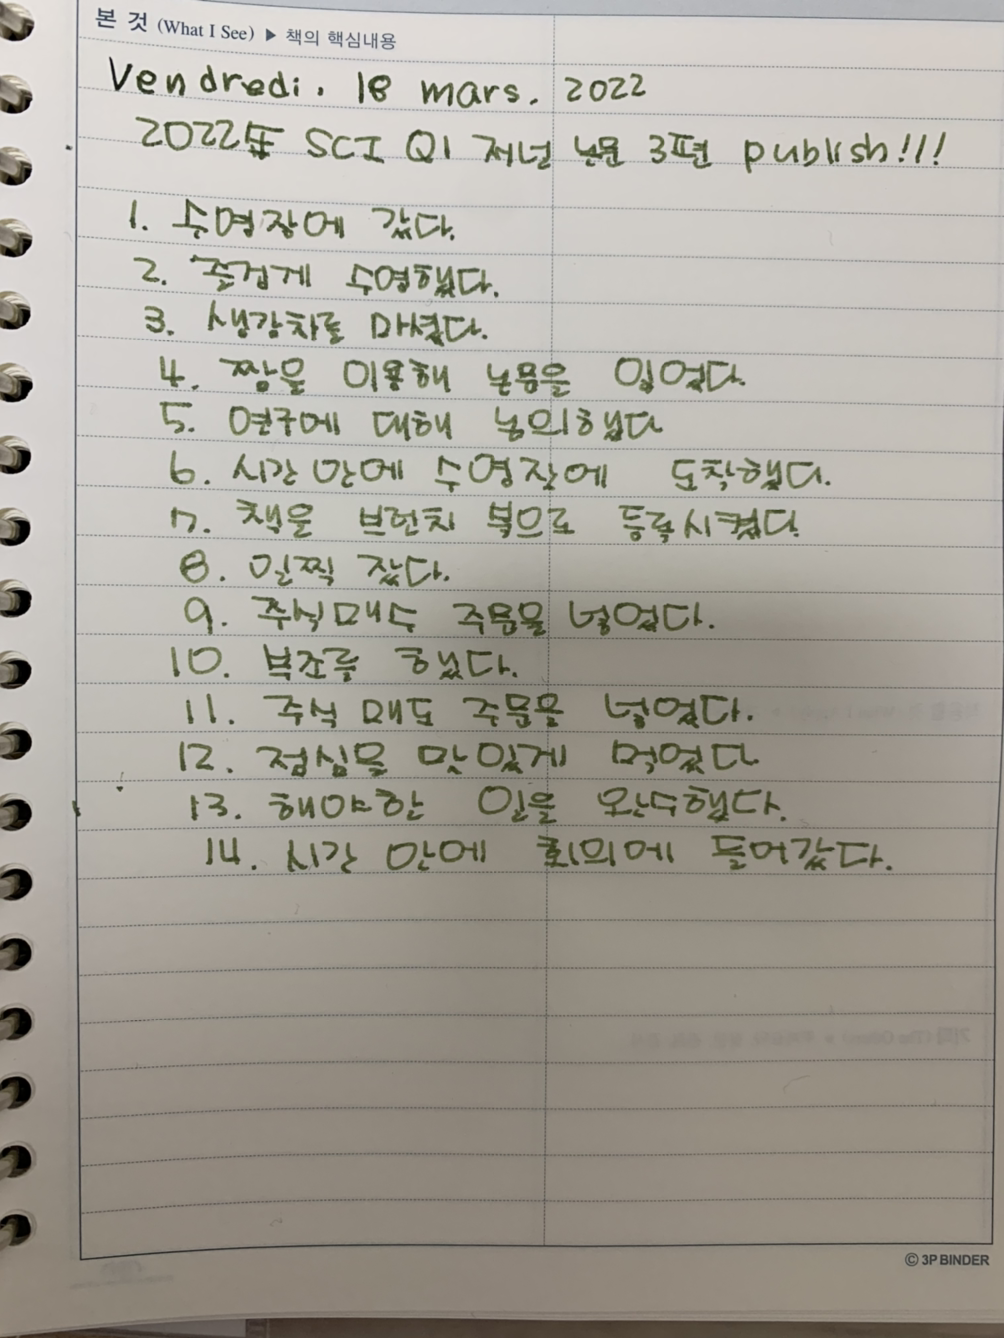 본 것 (What I See) ▶ 책의 핵심내용
Vendredi. 18 mars. 2022
2022年 SCI Q1 저널 논문 3편 publish!!!
1. 수영장에 갔다.
2. 즐겁게 수영했다.
3. 생강차를 마셨다.
4. 짬을 이용해 논문을 읽었다.
5. 연구에 대해 논의했다
6. 시간 안에 수영장에 도착했다.
7. 책을 브런치 북으로 등록시켰다.
8. 일찍 잤다.
9. 주식매수 주문을 넣었다.
10. 부조를 했다.
11. 주식 매도 주문을 넣었다.
12. 점심을 맛있게 먹었다
13. 해야할 일을 완수했다.
14. 시간 안에 회의에 들어갔다.
© 3P BINDER